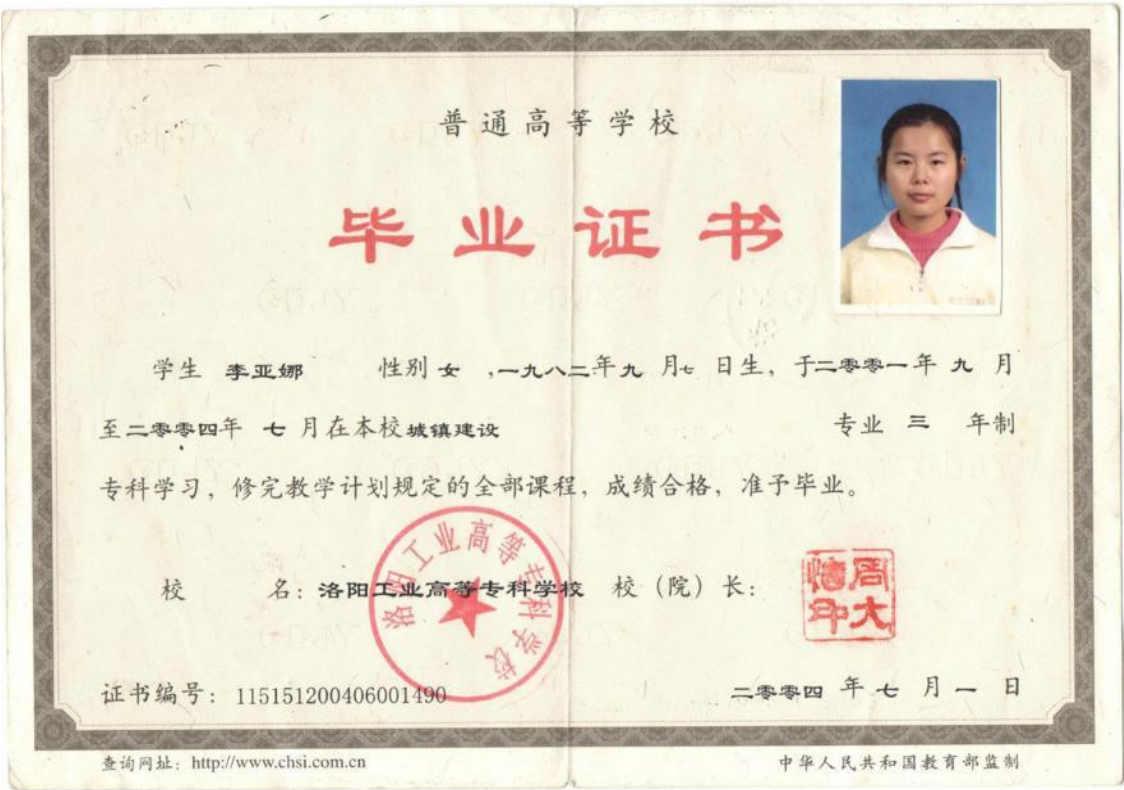 普通高等学校
毕业证书
学生 李亚娜 性别 女 ,一九八二年九 月七 日生, 于二零零一年 九 月
至二零零四年 七 月在本校城镇建设 专业 三 年制
专科学习, 修完教学计划规定的全部课程, 成绩合格, 准予毕业。
洛阳工业高等专科学校
校 名: 洛阳工业高等专科学校 校 (院) 长:
证书编号: 115151200406001490
二零零四 年 七 月 一 日
查询网址: http://www.chsi.com.cn
中华人民共和国教育部监制